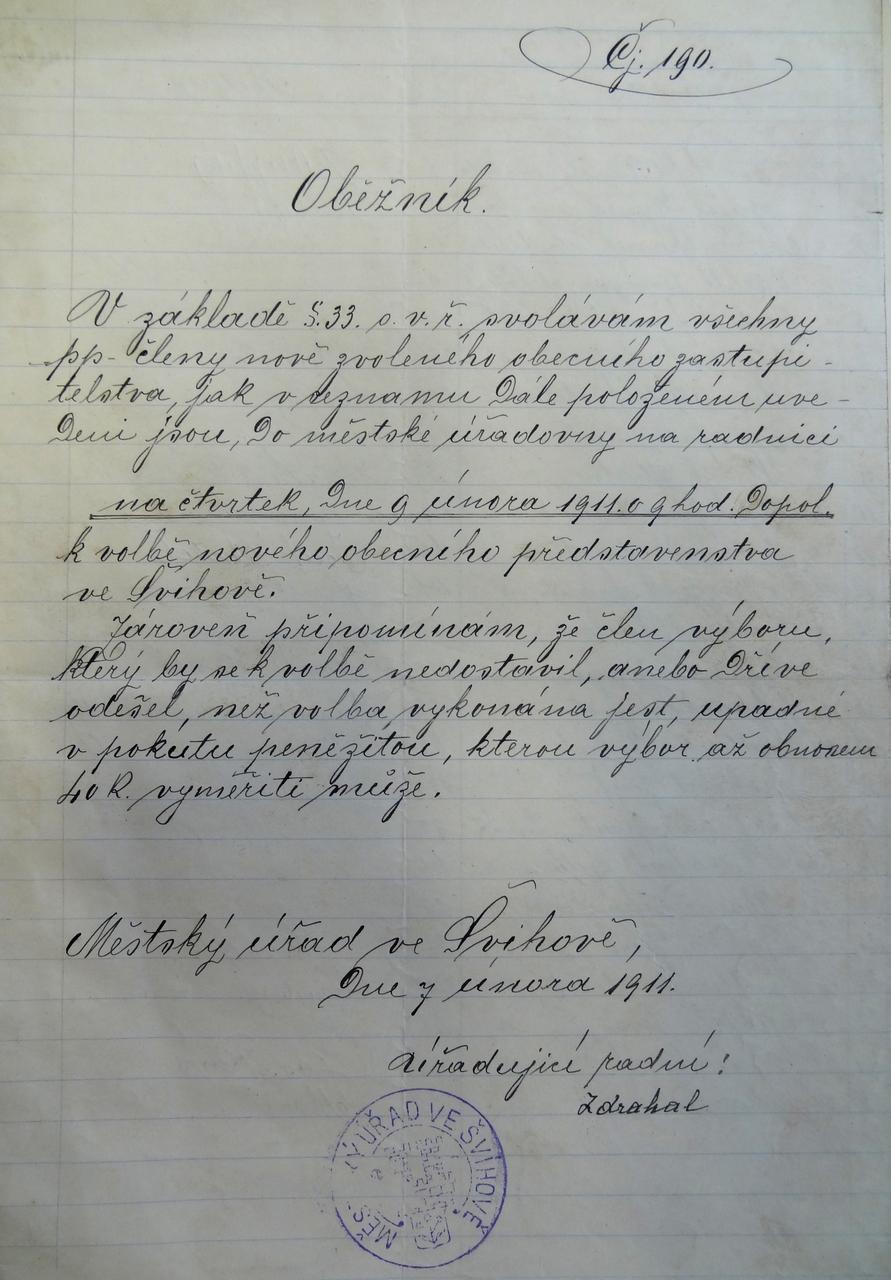 Čj. 190.
Oběžník.
V základě §. 33. o. v. ř. svolávám všechny
pp. členy nově zvoleného obecného zastupi-
telstva, jak v seznamu dále položeném uve-
deni jsou, do městské úřadovny na radnici
na čtvrtek, dne 9 února 1911. o 9 hod. dopol.
k volbě nového obecního představenstva
ve Švihově.
Zároveň připomínám, že člen výboru,
který by se k volbě nedostavil, anebo dříve
odešel, než volba vykonána jest, upadne
v pokutu peněžitou, kterou výbor až obnosem
40 K. vyměřiti může.
Městský úřad ve Švihově,
dne 7 února 1911.
Úřadující radní:
Zdrahal
MĚS Ý ÚŘAD VE ŠVIHOVĚ